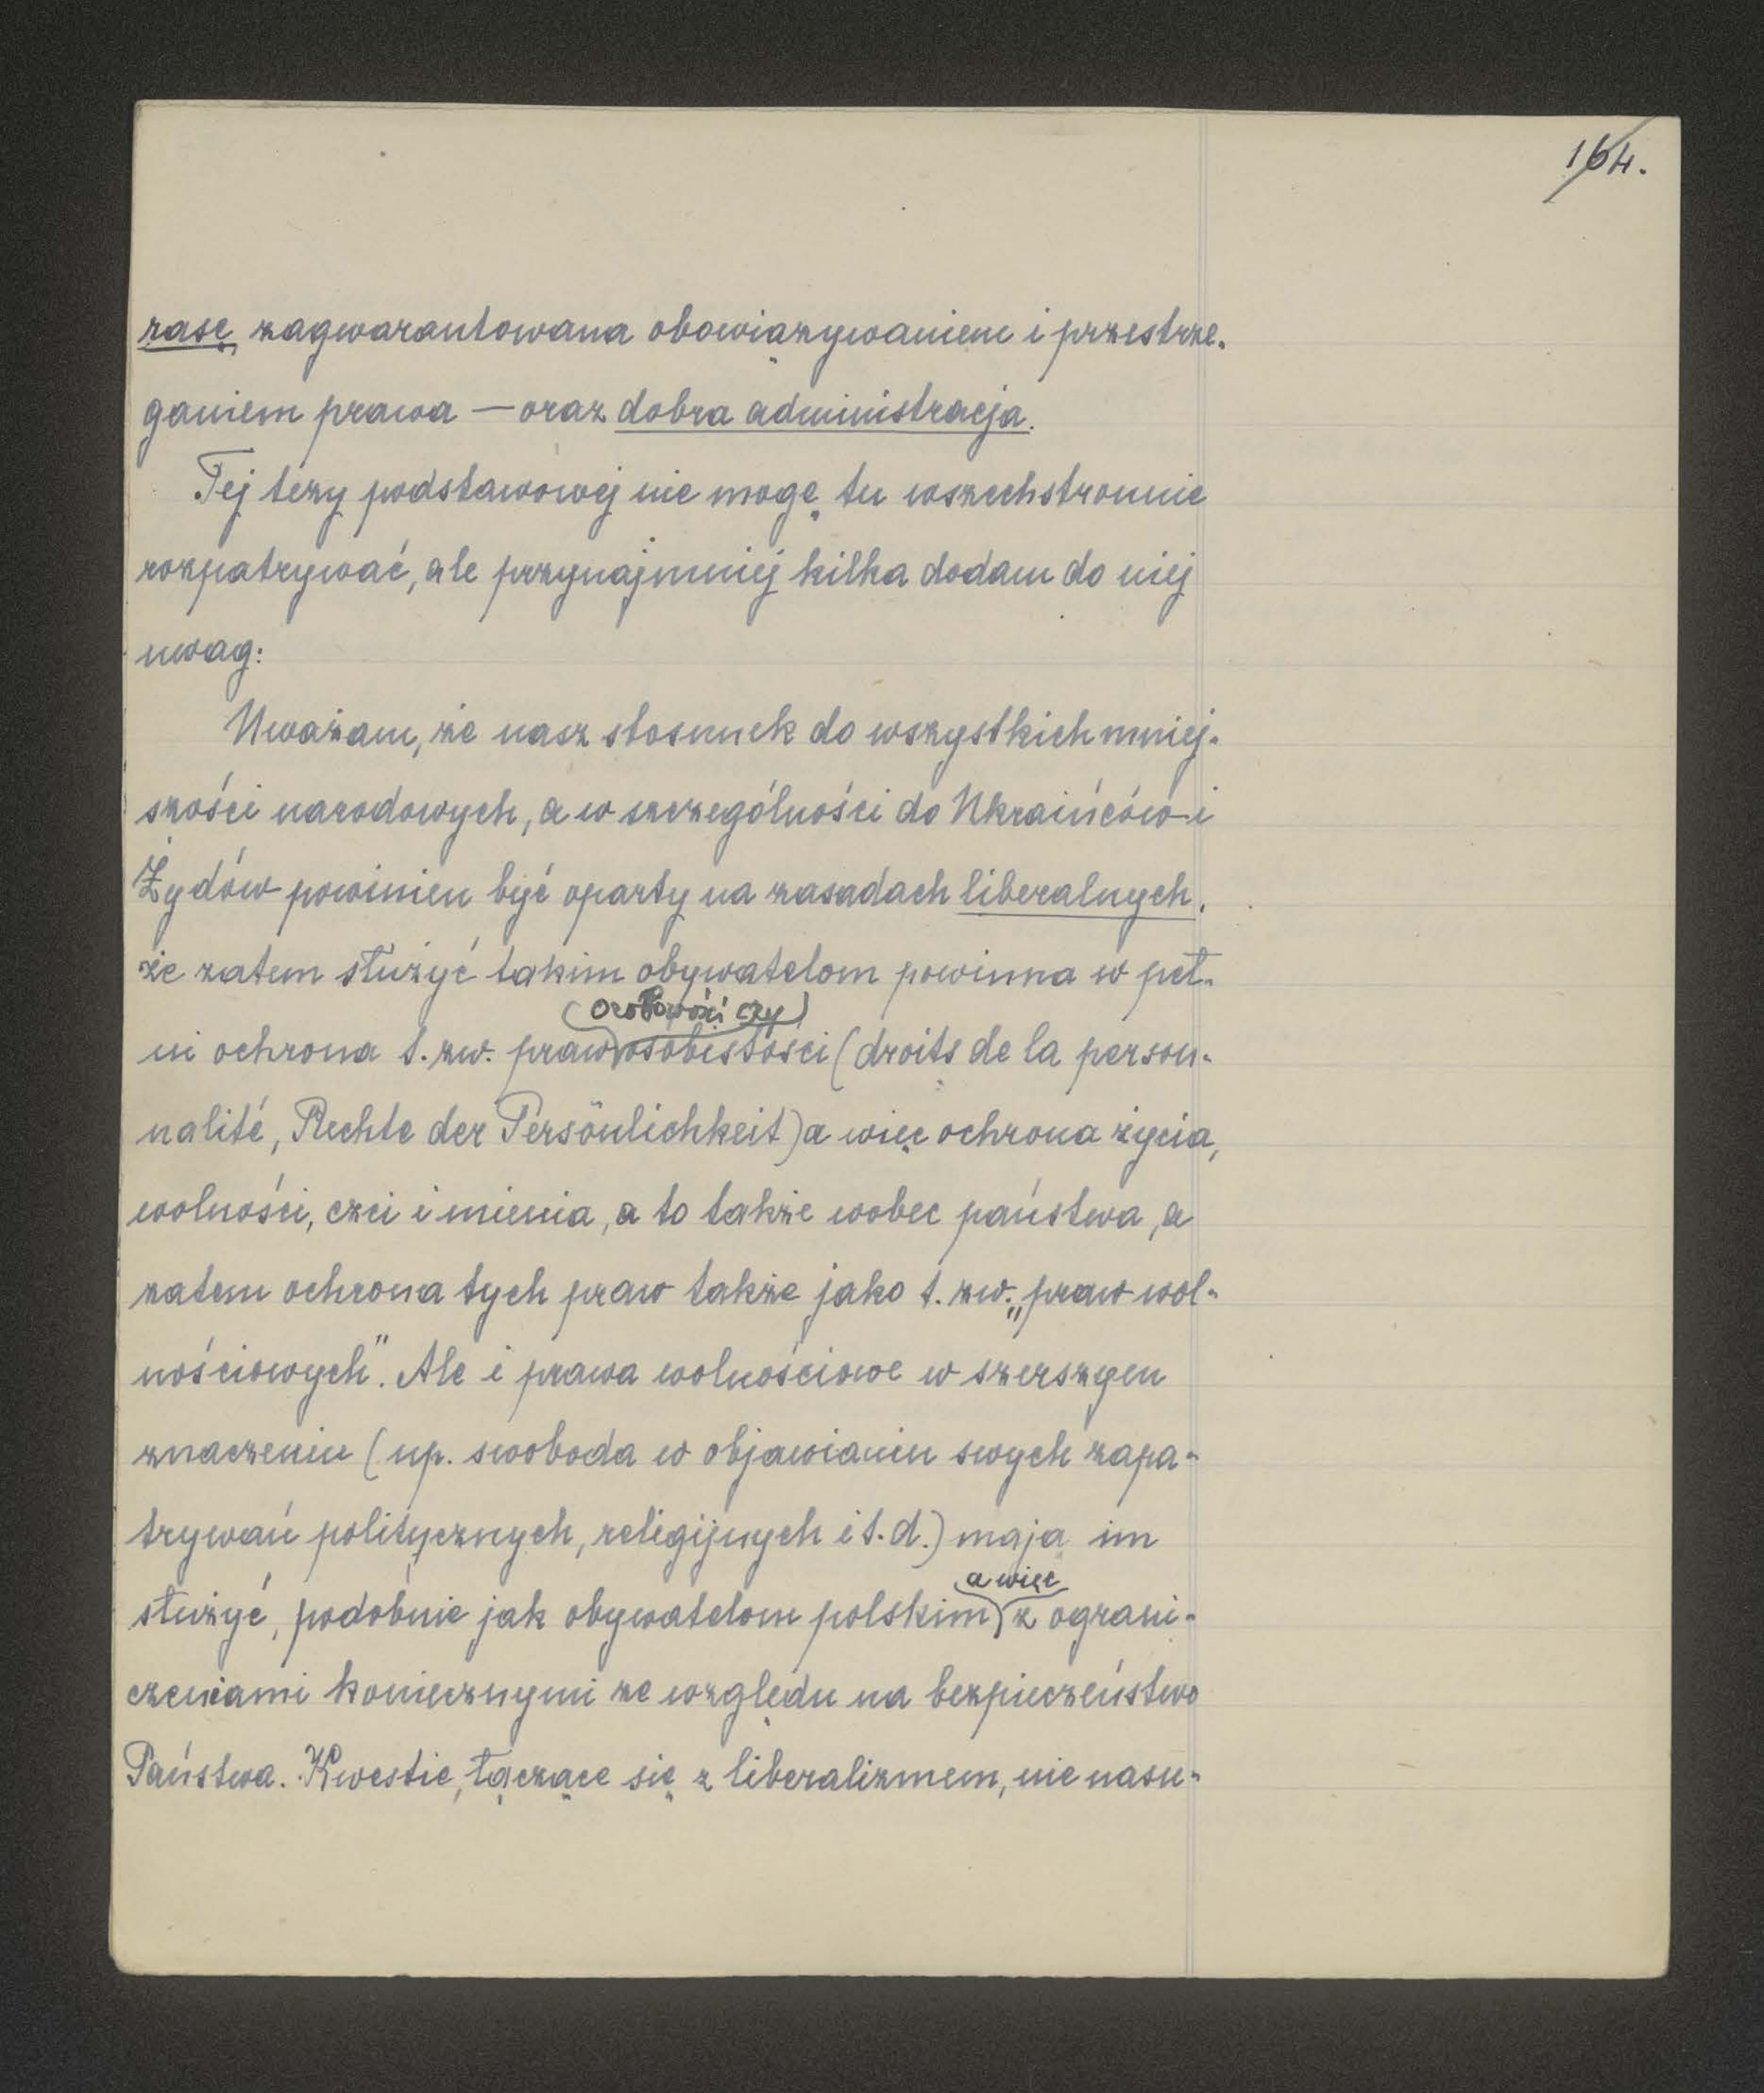 164.
rasę, zagwarantowana obowiązywaniem i przestrze-
ganiem prawa — oraz dobra administracja.
Tej tezy podstawowej nie mogę tu wszechstronnie
rozpatrywać, ale przynajmniej kilka dodam do niej
uwag:
Uważam, że nasz stosunek do wszystkich mniej-
szości narodowych, a w szczególności do Ukraińców i
Żydów powinien być oparty na zasadach liberalnych,
że zatem służyć takim obywatelom powinna w peł-
osobowości czy
ni ochrona t. zw. praw osobistości (droits de la person-
nalité, Rechte der Persönlichkeit) a więc ochrona życia,
wolności, czci i mienia, a to także wobec państwa, a
zatem ochrona tych praw także jako t. zw. „praw wol-
nościowych". Ale i prawa wolnościowe w szerszym
znaczeniu (np. swoboda w objawianiu swych zapa-
trywań politycznych, religijnych i t. d.) mają im
a więc
służyć, podobnie jak obywatelom polskim z ograni-
czeniami koniecznymi ze względu na bezpieczeństwo
Państwa. Kwestie, łączące się z liberalizmem, nie nasu-